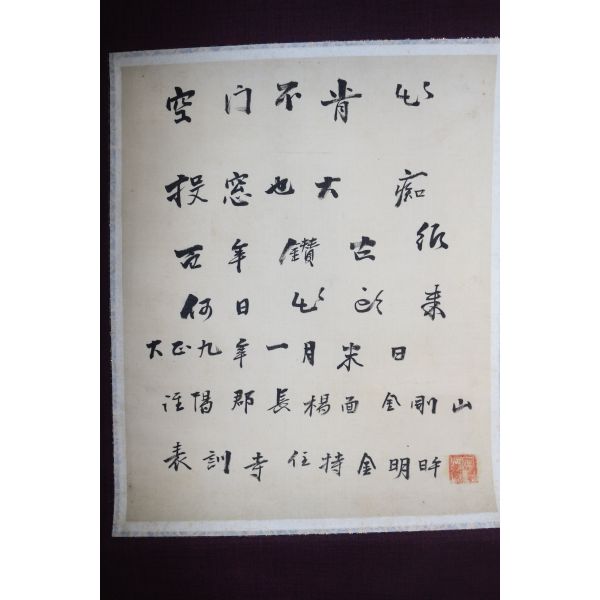 空门不肯出
投窓也大痴
百年鑽古紙
何日出頭来
大正九年一月末日
淮陽郡長楊面金剛山
表訓寺住持金明旿